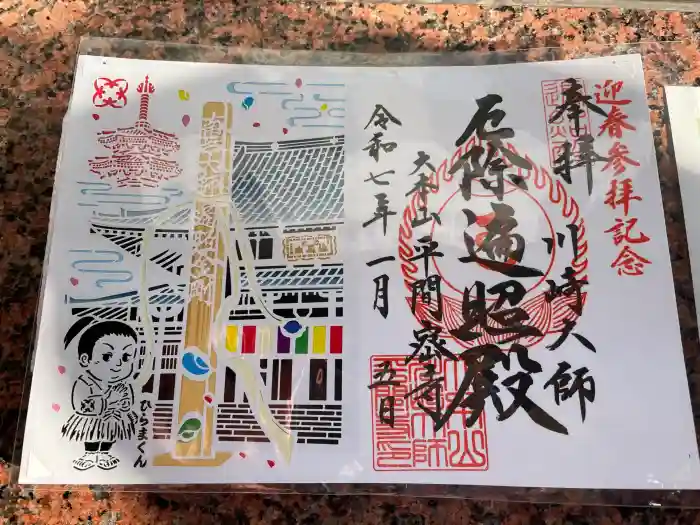 迎春参拝記念
奉拝
川崎大師
厄除遍照殿
大本山平間密寺
令和七年一月
五日
ひらまくん